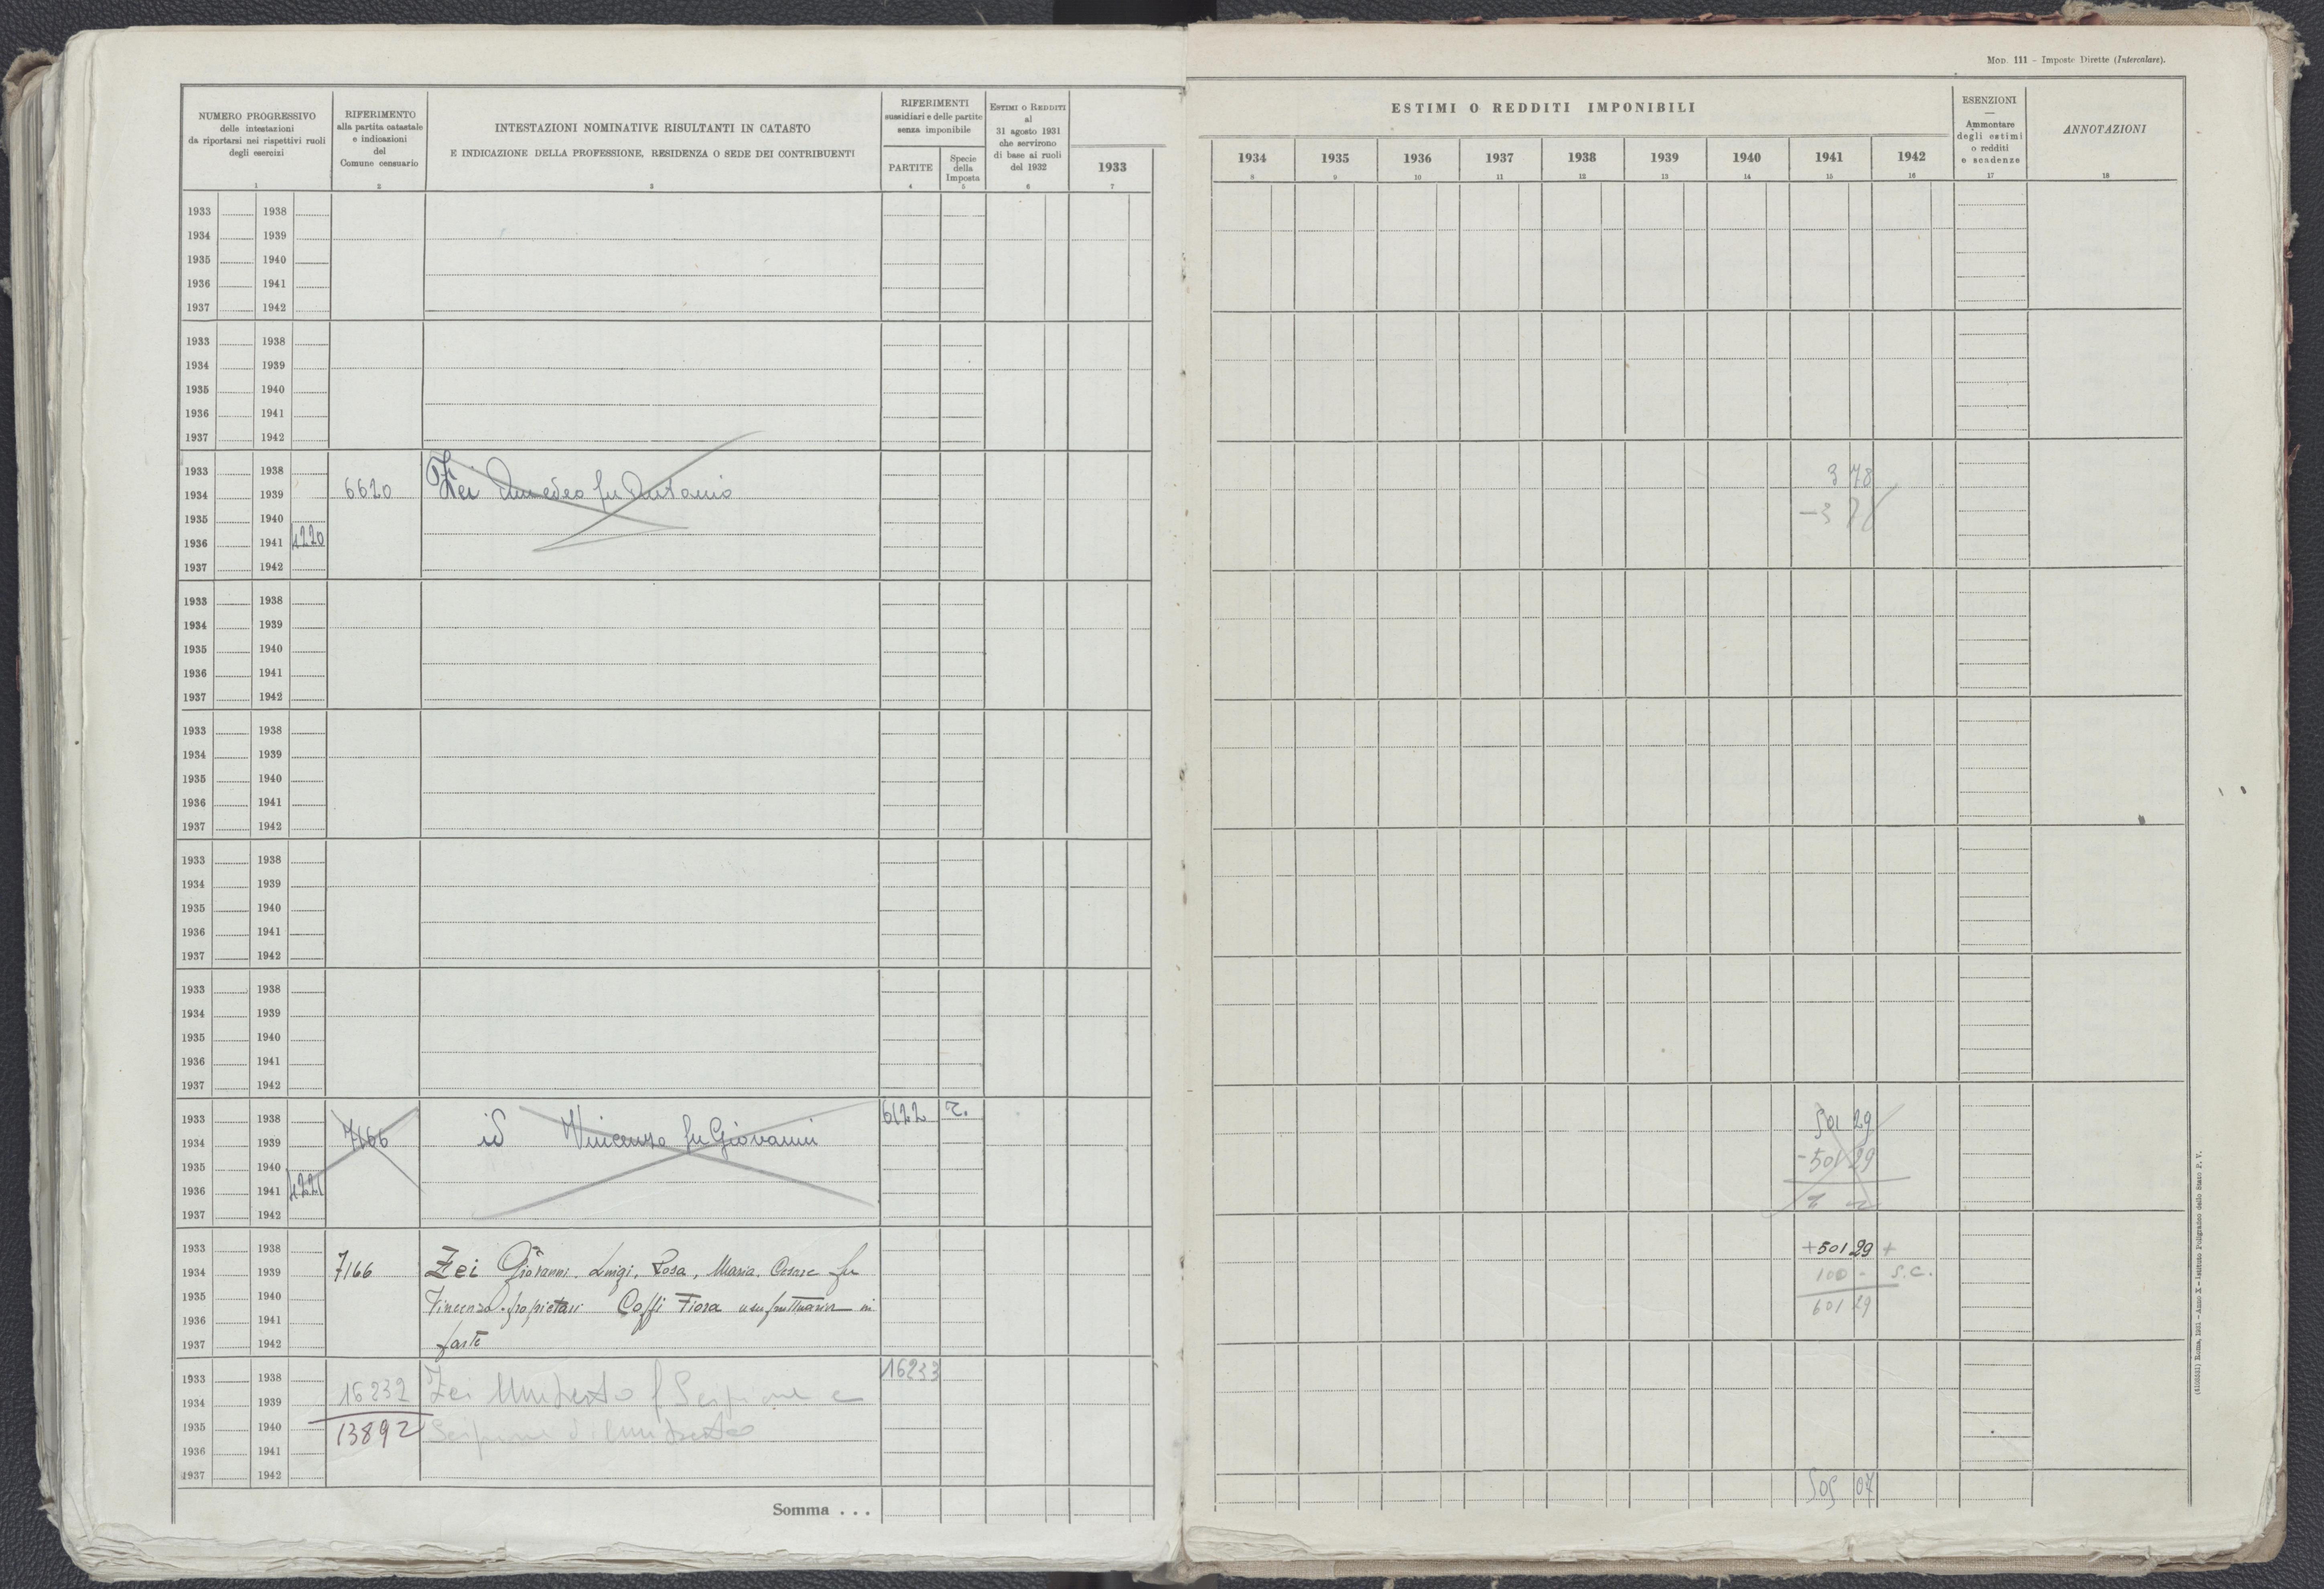 MOD. 111 - Imposte Dirette (Intercalare).
NUMERO PROGRESSIVO
delle intestazioni
da riportarsi nei rispettivi ruoli
degli esercizi
1
RIFERIMENTO
alla partita catastale
e indicazioni
del
Comune censuario
2
INTESTAZIONI NOMINATIVE RISULTANTI IN CATASTO
E INDICAZIONE DELLA PROFESSIONE, RESIDENZA O SEDE DEI CONTRIBUENTI
3
RIFERIMENTI
sussidiari e delle partite
senza imponibile
PARTITE
4
Specie
della
Imposta
5
ESTIMI O REDDITI
al
31 agosto 1931
che servirono
di base ai ruoli
del 1932
6
1933
7
ESTIMI O REDDITI IMPONIBILI
1934 1935 1936 1937 1938 1939 1940 1941 1942
8 9 10 11 12 13 14 15 16
ESENZIONI
—
Ammontare
degli estimi
o redditi
e scadenze
17
ANNOTAZIONI
18
1933 1938
1934 1939
1935 1940
1936 1941
1937 1942
1933 1938
1934 1939
1935 1940
1936 1941
1937 1942
1933 1938 3 78
1934 1939 6620 Zei Amedeo fu Antonio
1935 1940 -3 78
1936 1941 4220
1937 1942
1933 1938
1934 1939
1935 1940
1936 1941
1937 1942
1933 1938
1934 1939
1935 1940
1936 1941
1937 1942
1933 1938
1934 1939
1935 1940
1936 1941
1937 1942
1933 1938
1934 1939
1935 1940
1936 1941
1937 1942
1933 1938 6122 r. 501 29
1934 1939 7166 id Vincenzo fu Giovanni
1935 1940 -501 29
1936 1941 4221
1937 1942
1933 1938 +501 29 +
1934 1939 7166 Zei Giovanni, Luigi, Rosa, Maria, Cesare fu 100 - S.C.
1935 1940 Vincenzo. proprietari Coffi Fiora usufruttuaria in 601 29
1936 1941
1937 1942 parte
1933 1938 16233
1934 1939 16232 Zei Umberto f Scipione e
1935 1940 13892 Scipione d. Umberto
1936 1941
1937 1942
505 07
Somma . . .
(4103551) Roma, 1931 - Anno X - Istituto Poligrafico dello Stato P. V.